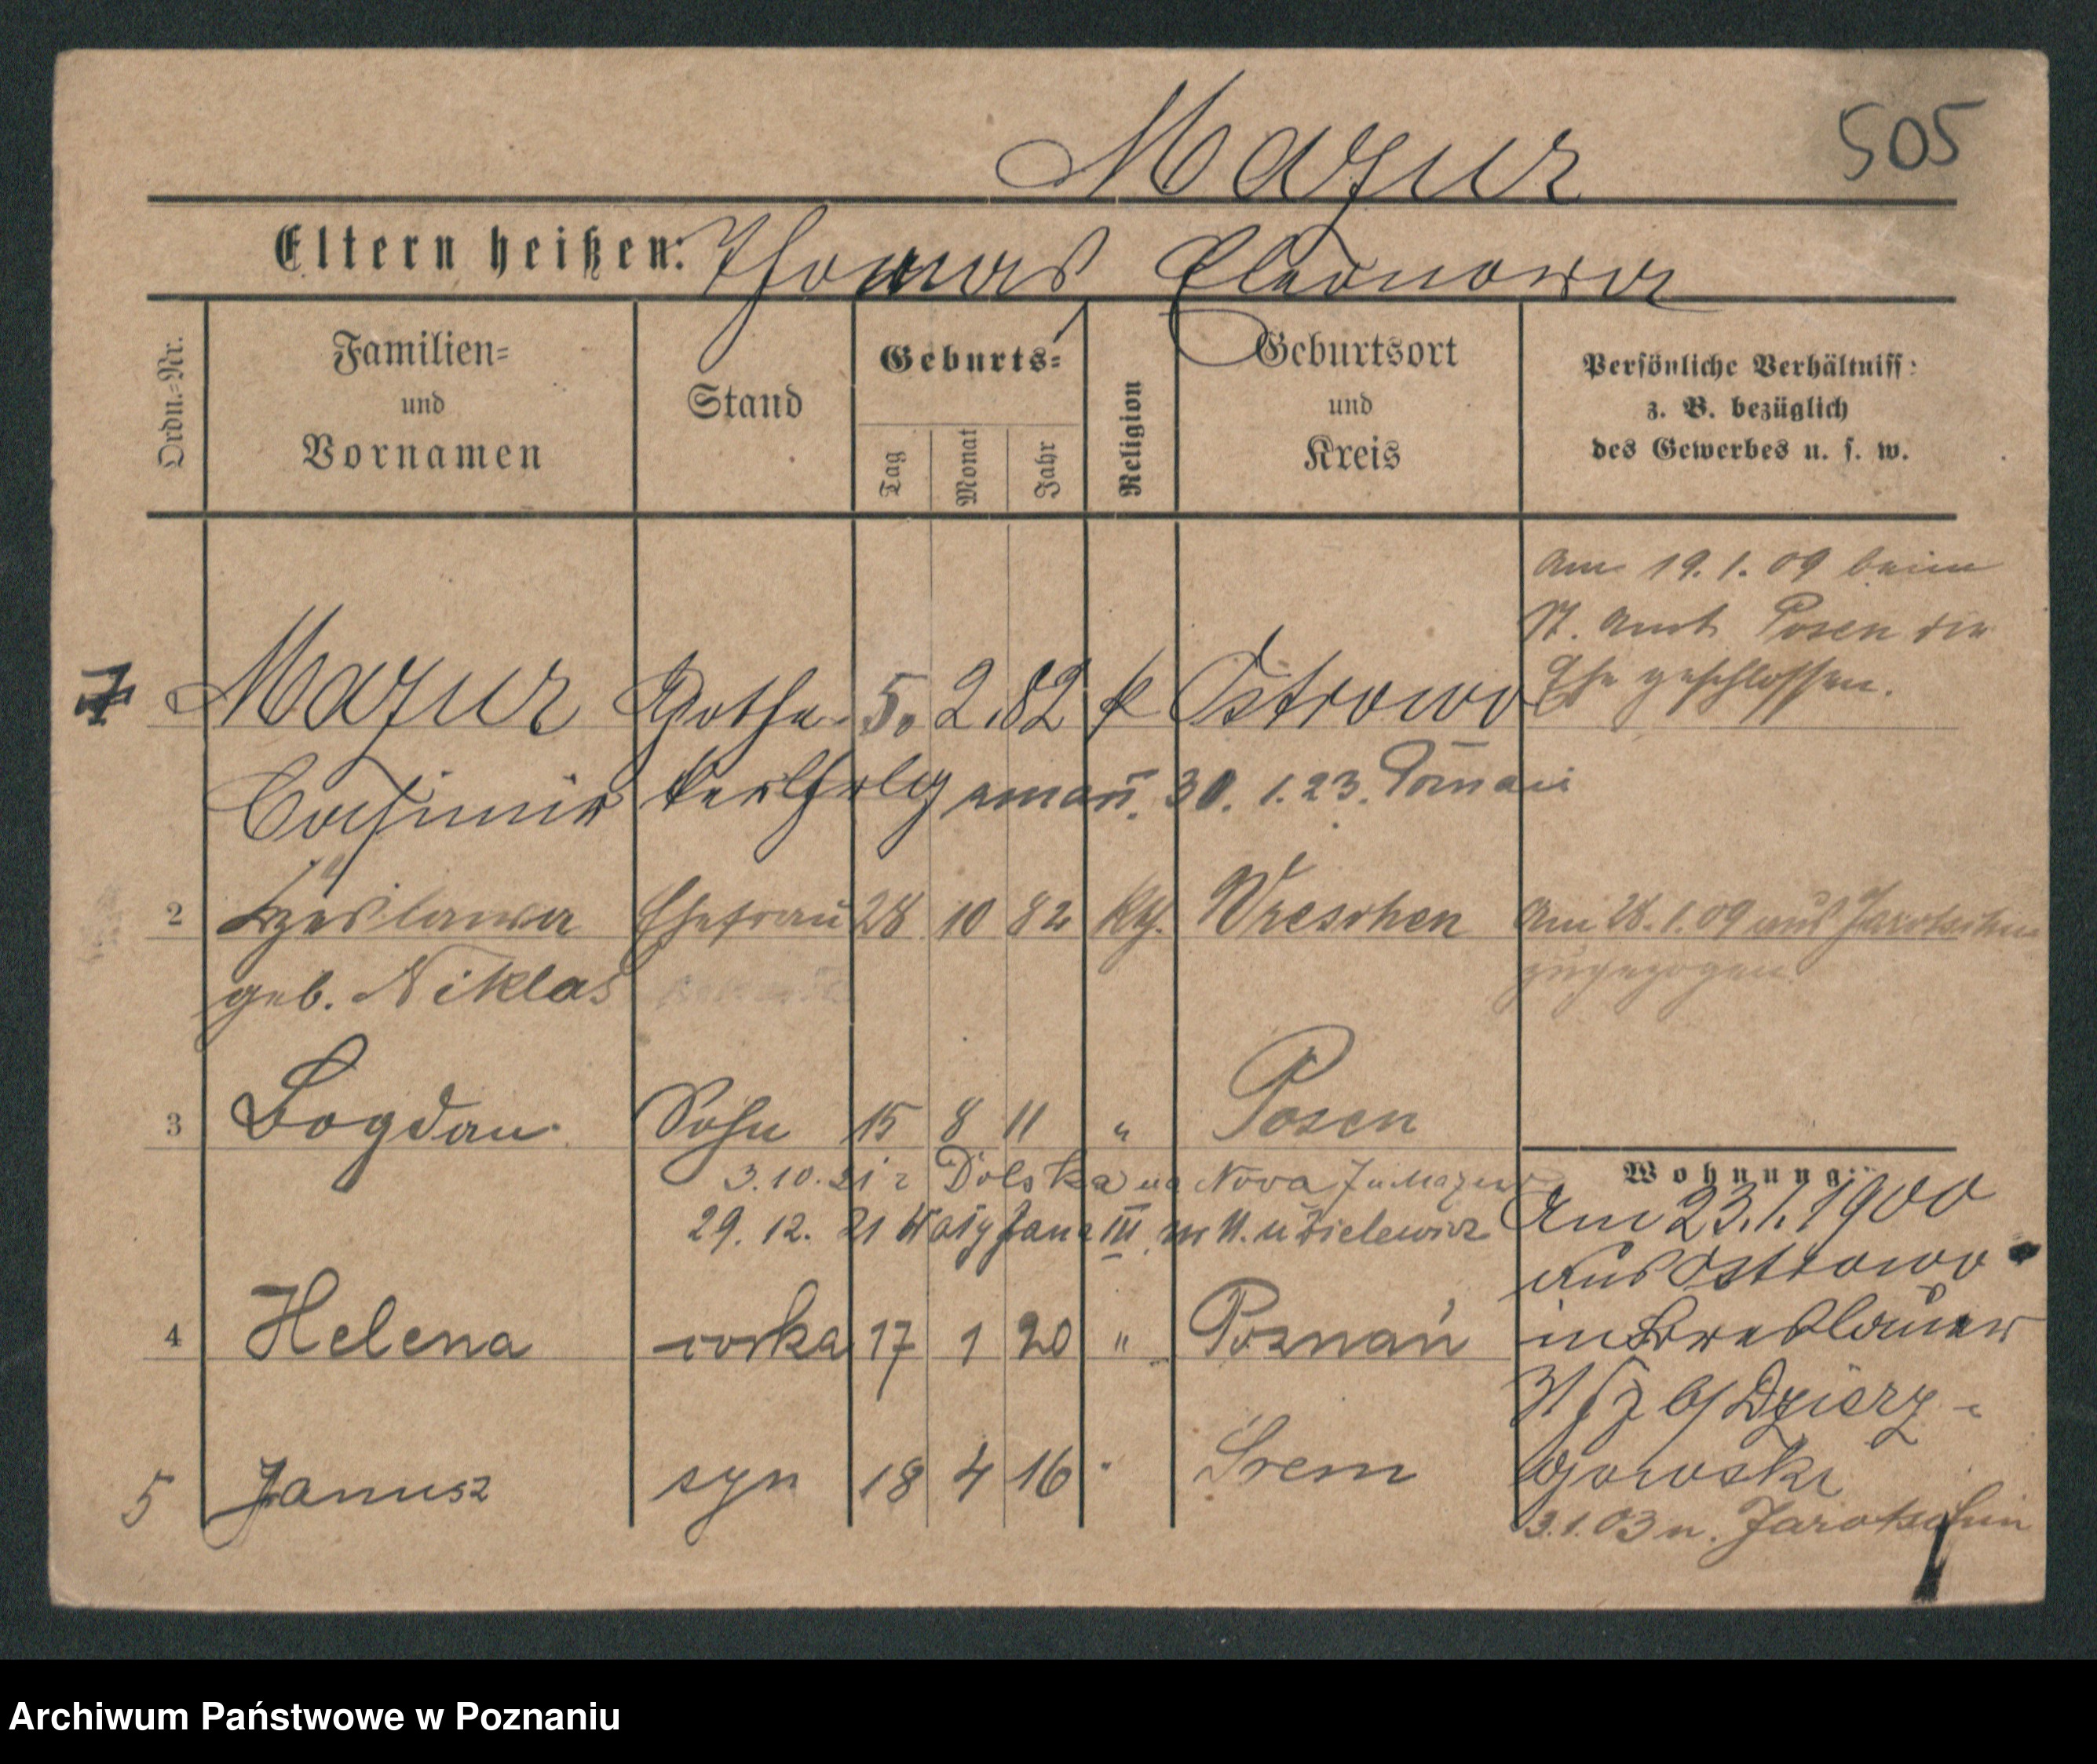 505
Mazur
Eltern heißen: Thomas Eleonora
Ordn.-Nr.
Familien-
und
Vornamen
Stand
Geburts-
Tag
Monat
Jahr
Religion
Geburtsort
und
Kreis
Persönliche Verhältniss:
z. B. bezüglich
des Gewerbes u. s. w.
Am 19.1.09 beim
St. Amt Posen die
Ehe geschlossen.
Mazur 5. 2. 82 k Ostrowo
Casimir 30. 1. 23.
2 Czeslawa Ehefrau 28 10 82 kth. Wreschen Am 28.1.09 aus Jarotschin
geb. Niklas zugezogen
3 Bogdan Sohn 15 8 11 " Posen
3.10.21 z Dolska na
29. 12. 21 Jana III
4 Helena corka 17 1 20 " Poznań
5 Janusz syn 18 4 16 " Srem
Wohnung:
Am 23.1.1900
aus Ostrowo
in Breslauer
31 b/ Dzierz-
gowski
3.1.03 n. Jarotschin
Archiwum Państwowe w Poznaniu